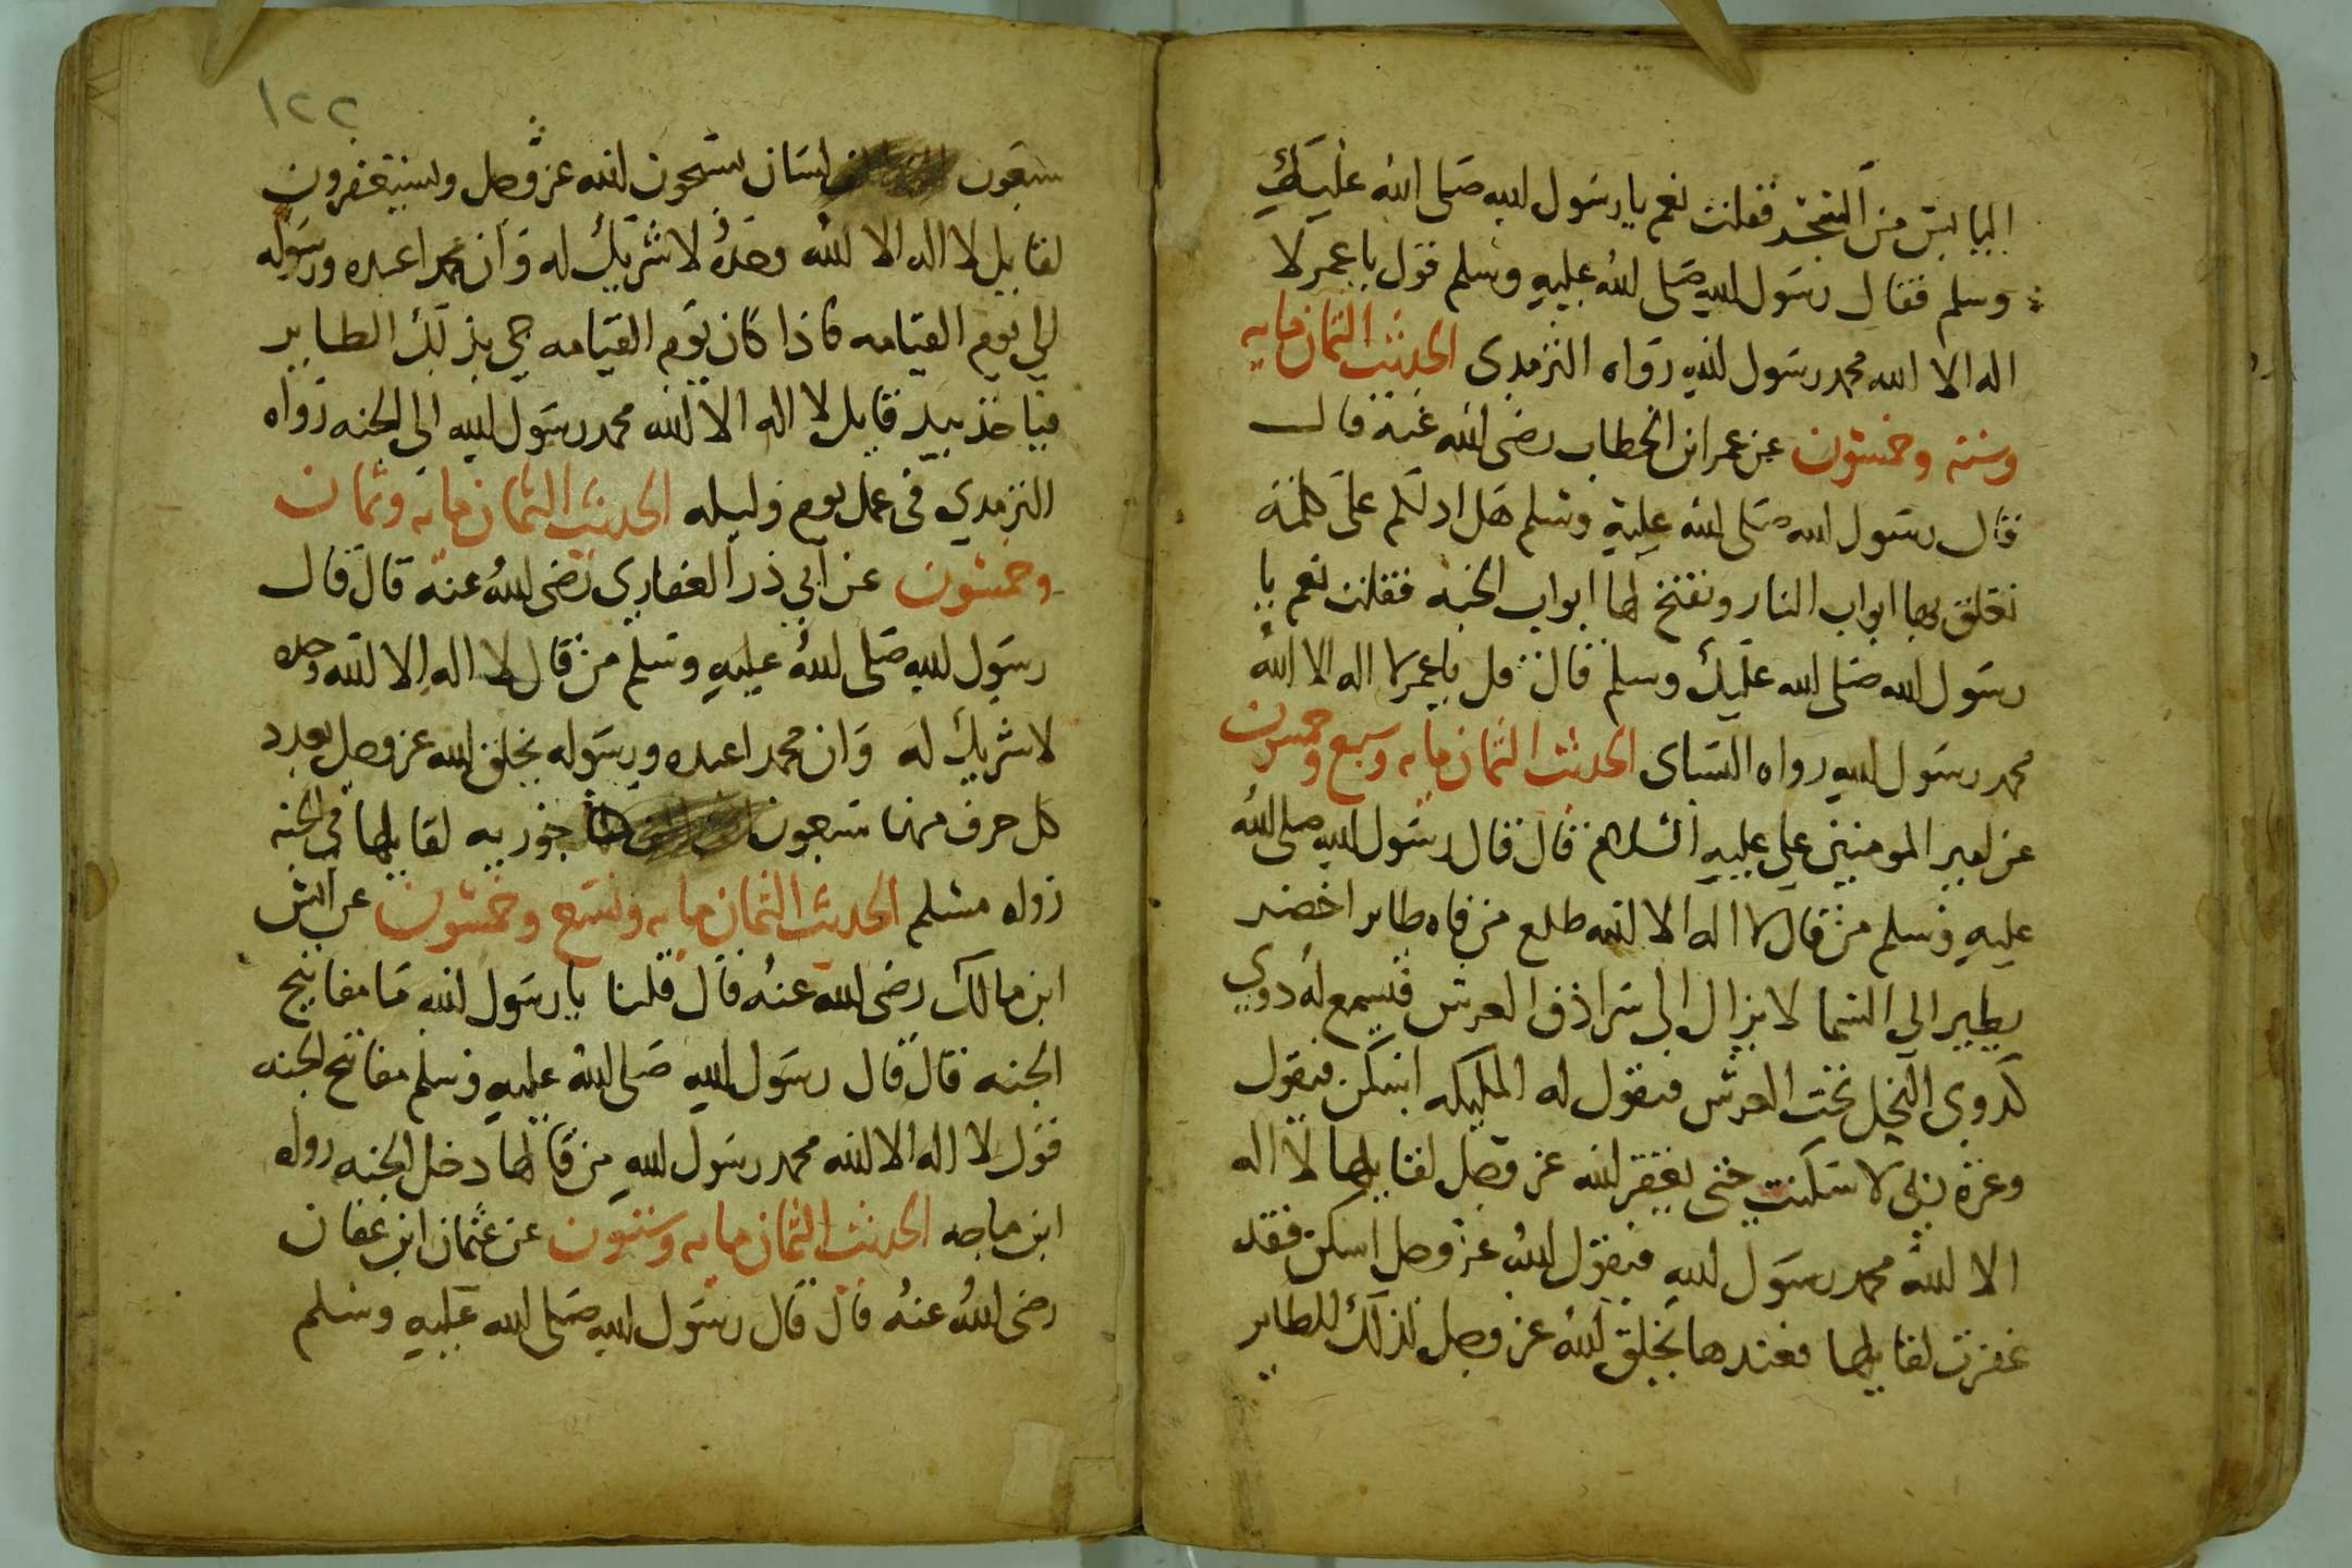 اليابس من الشجر فقلت نعم يا رسول الله صلى الله عليك
وسلم فقال رسول الله صلى الله عليه وسلم قول يا عمر لا
اله الا الله محمد رسول الله رواه الترمدي الحديث الثمان مايه
وسته وخمسون عن عمر ابن الخطاب رضى الله عنه قال
قال رسول الله صلى الله عليه وسلم هل ادلكم على كلمة
تغلق بها ابواب النار وتفتح لها ابواب الجنه فقلت نعم يا
رسول الله صلى الله عليك وسلم قال قل يا عمر لا اله الا الله
محمد رسول الله رواه النساى الحديث الثمان مايه وسبع وخمسون
عن امير المومنين علي عليه السلام قال قال رسول الله صلى الله
عليه وسلم من قال لا اله الا الله طلع من فاه طاير اخضر
يطير الى السما لا يزال الى سرادق العرش فيسمع له دوي
كدوي النحل تحت العرش فيقول له المليكه اسكن فيقول
وعزة ربى لا سكنت حتى يغفر الله عز وجل لقايلها لا اله
الا الله محمد رسول الله فيقول الله عز وجل اسكن فقد
غفرت لقايلها فعندها يخلق الله عز وجل لذلك للطاير
١٢٢
سبعون لسان يسبحون الله عز وجل ويستغفرون
لقايل لا اله الا الله وحده لا شريك له وان محمدا عبده ورسوله
الي يوم القيامه فاذا كان يوم القيامه جي بذلك الطاير
فياخذ بيد قايل لا اله الا الله محمد رسول الله الى الجنه رواه
الترمدي فى عمل يوم وليله الحديث الثمان مايه وثمان
وخمسون عن ابي ذر الغفاري رضى الله عنه قال قال
رسول الله صلى الله عليه وسلم من قال لا اله الا الله وحده
لا شريك له وان محمدا عبده ورسوله يخلق الله عز وجل بعدد
كل حرف منها سبعون حوريه لقايلها في الجنه
رواه مسلم الحديث الثمان مايه وتسع وخمسون عن انس
ابن مالك رضى الله عنه قال قلنا يا رسول الله ما مفاتيح
الجنه قال قال رسول الله صلى الله عليه وسلم مفاتيح الجنه
قول لا اله الا الله محمد رسول الله من قالها دخل الجنه رواه
ابن ماجه الحديث الثمان مايه وستون عن عثمان ابن عفان
رضى الله عنه قال قال رسول الله صلى الله عليه وسلم